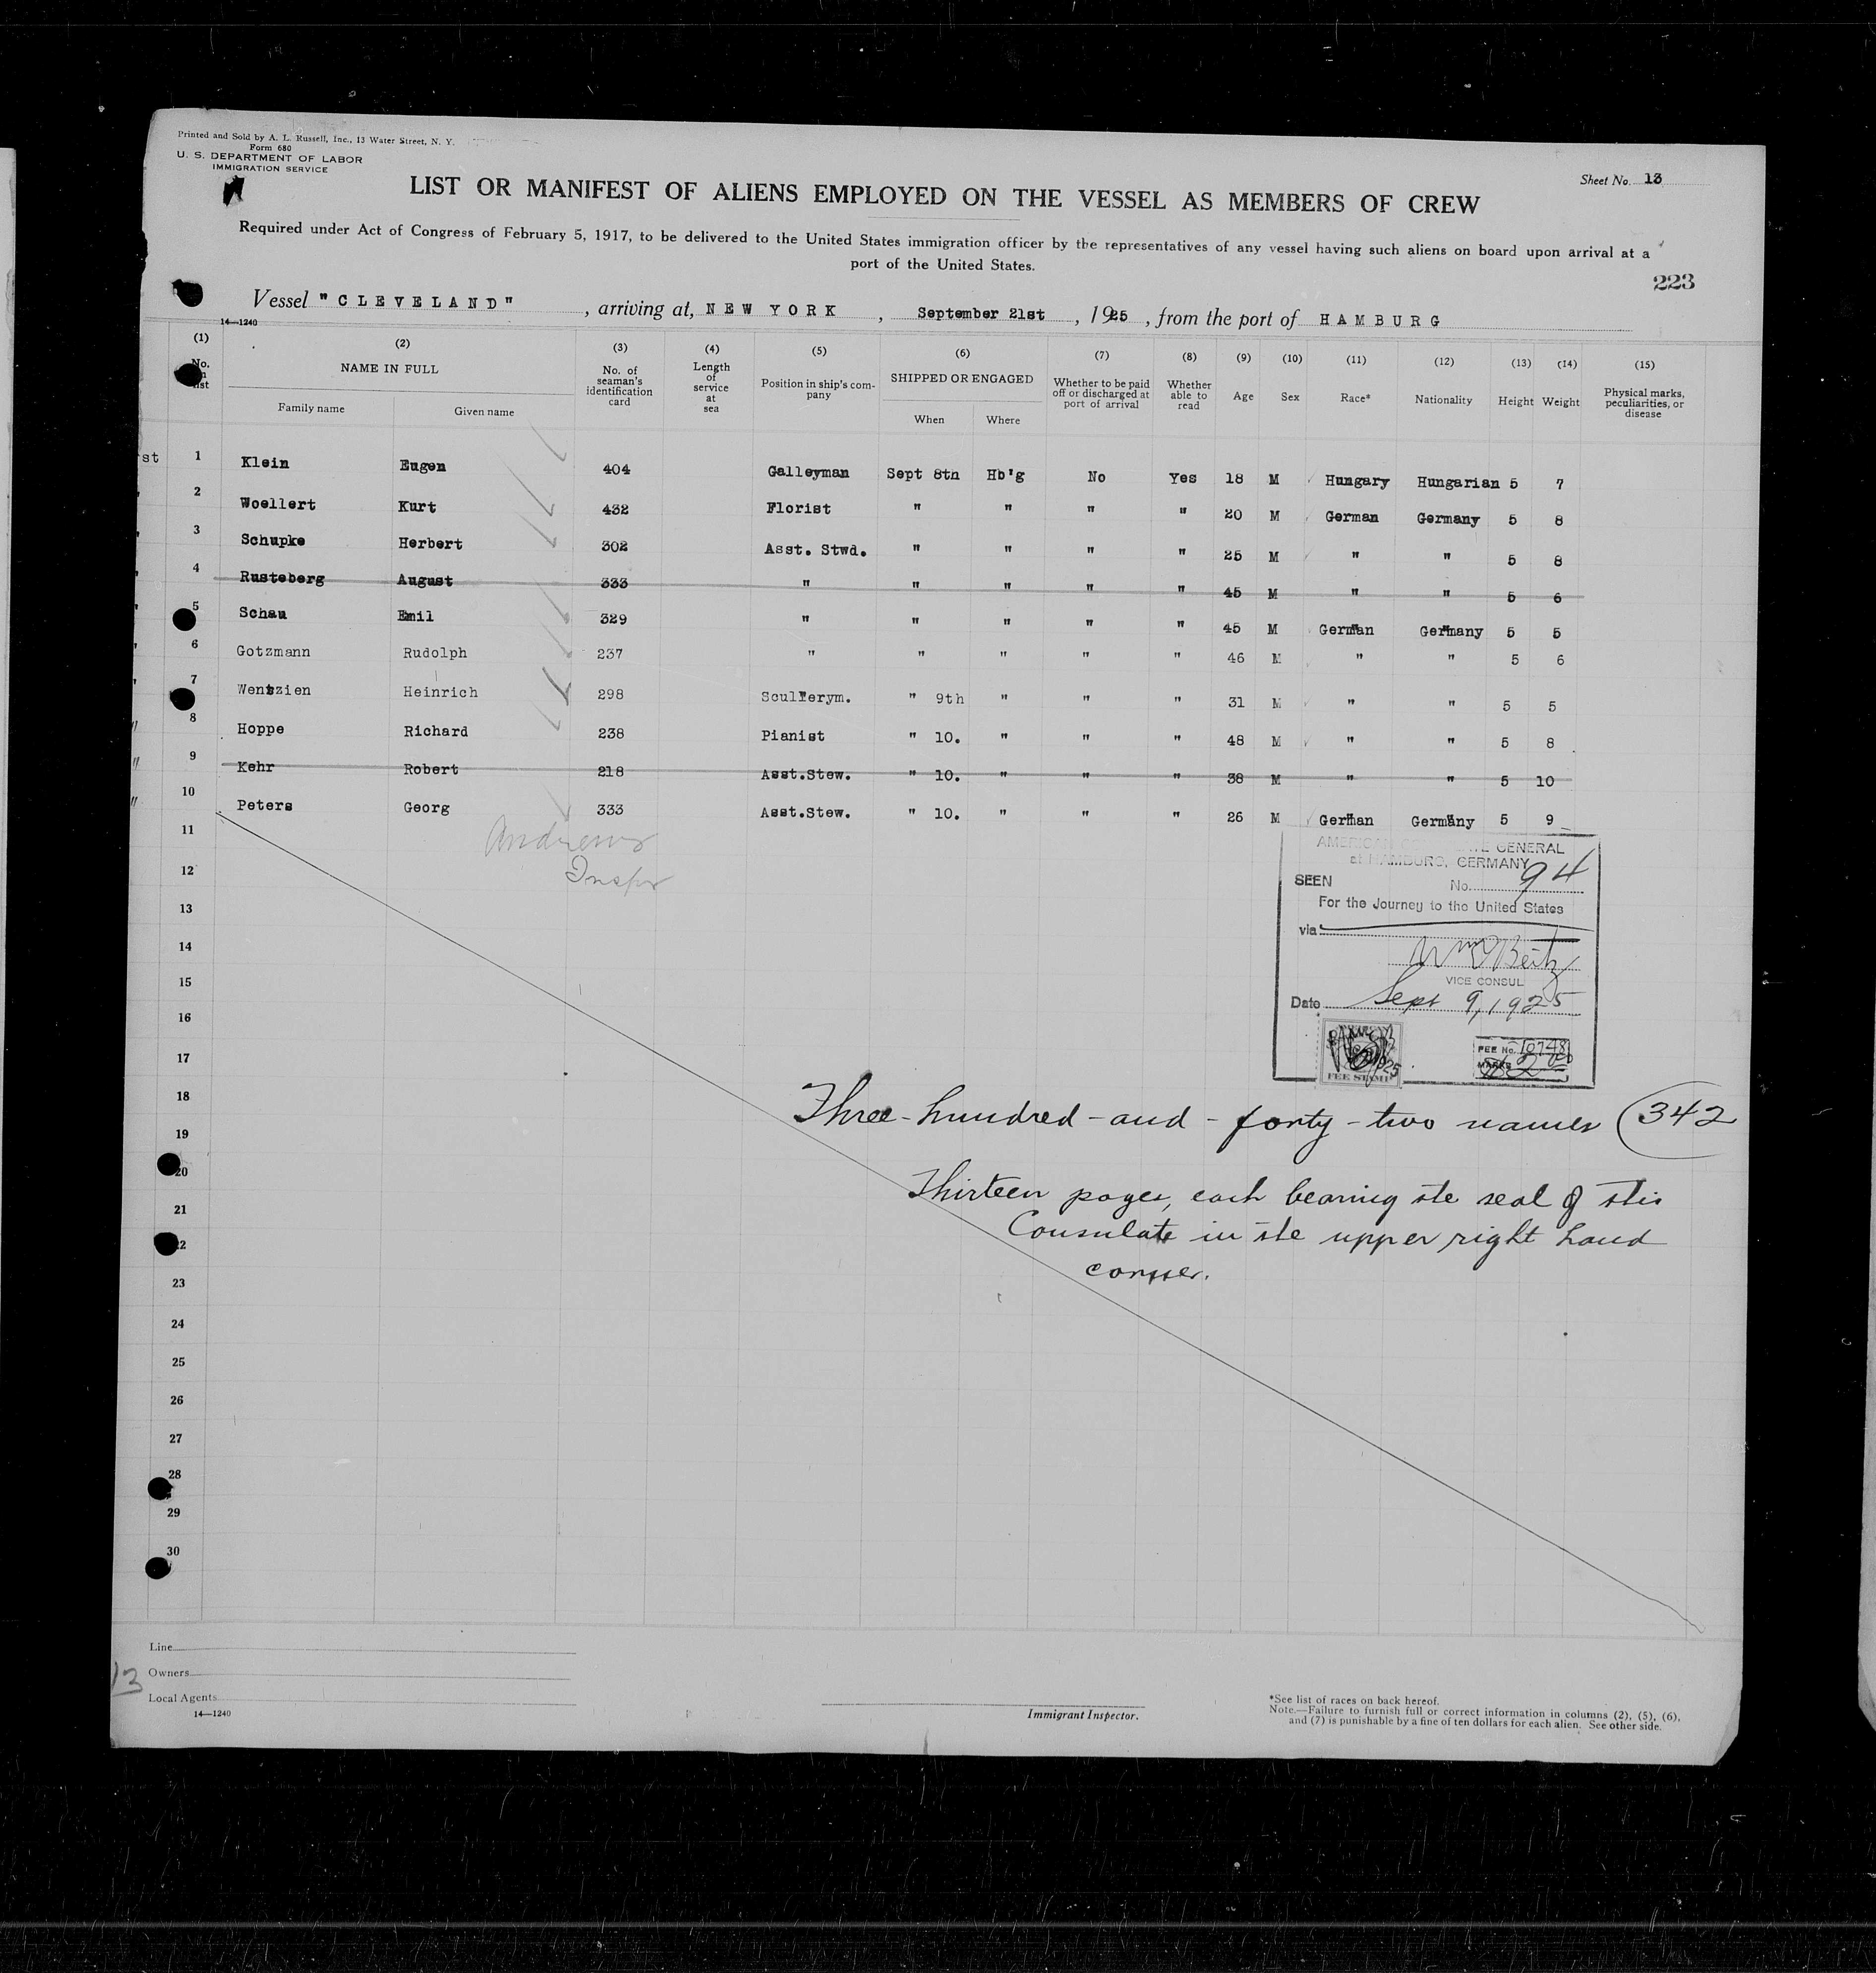 Printed and Sold by A. L. Russell, Inc., 13 Water Street, N. Y.
Form 680
U. S. DEPARTMENT OF LABOR
IMMIGRATION SERVICE
Sheet No. 13
LIST OR MANIFEST OF ALIENS EMPLOYED ON THE VESSEL AS MEMBERS OF CREW
Required under Act of Congress of February 5, 1917, to be delivered to the United States immigration officer by the representatives of any vessel having such aliens on board upon arrival at a
port of the United States.
223
Vessel "CLEVELAND", arriving at, NEW YORK, September 21st, 1925, from the port of HAMBURG
14—1240
(1) (2) (3) (4) (5) (6) (7) (8) (9) (10) (11) (12) (13) (14) (15)
No. list NAME IN FULL Family name Given name No. of seaman's identification card Length of service at sea Position in ship's company SHIPPED OR ENGAGED When Where Whether to be paid off or discharged at port of arrival Whether able to read Age Sex Race* Nationality Height Weight Physical marks, peculiarities, or disease
st 1 Klein Eugen 404 Galleyman Sept 8th Hb'g No Yes 18 M Hungary Hungarian 5 7
" 2 Woellert Kurt 432 Florist " " " " 20 M German Germany 5 8
" 3 Schupke Herbert 302 Asst. Stwd. " " " " 25 M " " 5 8
" 4 Rusteberg August 333 " " " " " 45 M " " 5 6
" 5 Schau Emil 329 " " " " " 45 M German Germany 5 5
" 6 Gotzmann Rudolph 237 " " " " " 46 M " " 5 6
" 7 Wentzien Heinrich 298 Scullerym. " 9th " " " 31 M " " 5 5
" 8 Hoppe Richard 238 Pianist " 10. " " " 48 M " " 5 8
" 9 Kehr Robert 218 Asst.Stew. " 10. " " " 38 M " " 5 10
" 10 Peters Georg 333 Asst.Stew. " 10. " " " 26 M German Germany 5 9
11 Andrews
12 Inspr
13
14
15
16
17
18
19
20
21
22
23
24
25
26
27
28
29
30
AMERICAN GENERAL
at HAMBURG, GERMANY
SEEN No. 94
For the Journey to the United States
via
Wm Beitz
VICE CONSUL
Date Sept 9, 1925
FEE STAMP
FEE No. 10748
MARKS
Three-hundred-and-forty-two names (342
Thirteen pages, each bearing the seal of this
Consulate in the upper right hand
corner.
Line
Owners
13
Local Agents
14—1240
Immigrant Inspector.
*See list of races on back hereof.
Note.—Failure to furnish full or correct information in columns (2), (5), (6),
and (7) is punishable by a fine of ten dollars for each alien. See other side.